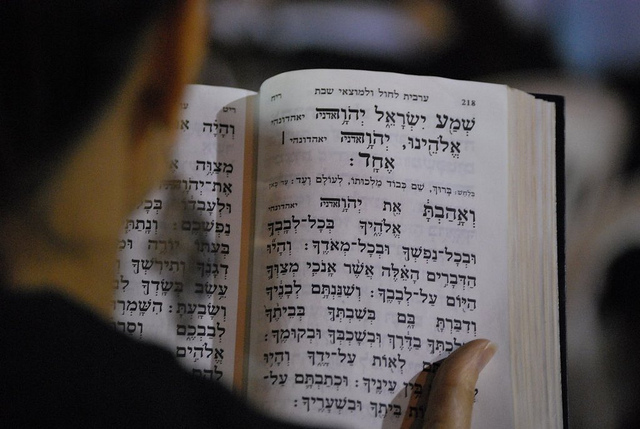 218 ערבית לחול ולמוצאי שבת ריח
שְׁמַע יִשְׂרָאֵל יְהֹוָאדניה יאהדונהי
אֱלֹהֵינוּ, יְהֹוָאדניה יאהדונהי |
אֶחָד:
בלחש: בָּרוּךְ, שֵׁם כְּבוֹד מַלְכוּתוֹ, לְעוֹלָם וָעֶד:
וְאָהַבְתָּ אֵת יְהֹוָאדניה יאהדונהי
אֱלֹהֶיךָ בְּכָל-לְבָבְךָ
וּבְכָל-נַפְשְׁךָ וּבְכָל-מְאֹדֶךָ: וְהָיוּ
הַדְּבָרִים הָאֵלֶּה אֲשֶׁר אָנֹכִי מְצַוְּךָ
הַיּוֹם עַל-לְבָבֶךָ: וְשִׁנַּנְתָּם לְבָנֶיךָ
וְדִבַּרְתָּ בָּם בְּשִׁבְתְּךָ בְּבֵיתֶךָ
וּבְלֶכְתְּךָ בַדֶּרֶךְ וּבְשָׁכְבְּךָ וּבְקוּמֶךָ:
לְאוֹת עַל-יָדֶךָ וְהָיוּ
בֵּין עֵינֶיךָ: וּכְתַבְתָּם עַל-
בֵּיתֶךָ וּבִשְׁעָרֶיךָ:
וְהָיָה
מִצְוֹתַי
אֶת-
וּלְעָבְדוֹ בְּכָל
נַפְשְׁכֶם: וְנָתַתִּי
בְּעִתּוֹ יוֹרֶה
דְגָנֶךָ וְתִירֹשְׁךָ
עֵשֶׂב בְּשָׂדְךָ
וְשָׂבָעְתָּ: הִשָּׁמְרוּ
לְבַבְכֶם
אֱלֹהִים